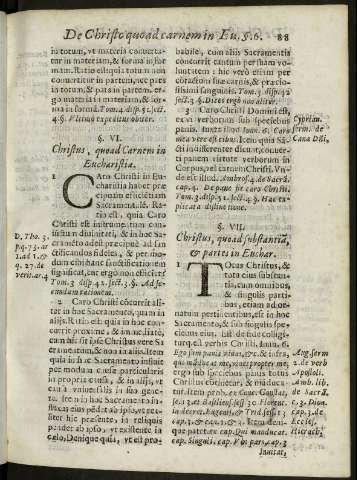 De Christo quoad carnem in Eu. §. 6. 88
in totum, vt materia conuerta-
tur in materiam, & forma in for
mam. Ratio est: quia totum non
conuertitur in partem, nec pars
in totum, & pars in partem. er-
go materia in materiam, & for-
ma in formã. Tom. 4. disp. 4. sect.
4. §. Vltimò expeditur obiter.
§. VI.
Christus, quoad Carnem in
Eucharistia.
1 Caro Christi in Eu-
charistia habet præ
cipuam efficiẽtiam
Sacramentalẽ. Ra-
tio est, quia Caro
Christi est instrumentum con
iunctum diuinitati, & in hoc Sa-
cramẽto adest præcipuè ad san
ctificandos fideles, & per mo-
dum cibi hanc sanctificationem
significat, ergo non efficiẽter
Tom. 3 disp. 2 sect. 3. §. Ad se-
cundam rationem.
2 Caro Christi concurrit ali-
ter in hoc Sacramento, quàm in
alijs. Ratio est: quia in hoc con-
currit proximè, & immediatè,
cum hic sit ipse Christus verè Sa
cramentum, & non in alijs. Item
quia in hoc Sacramento insinuat
modum causæ particularis
in propria causa, & in alijs, vt
causa vniuersalis in suo gene-
re. Item in hoc Sacramento in-
fluxus eius pẽdet ab ipso, vt rea-
liter hic præsente, in reliquis
pendet ab ipso, vt existente in
cœlo. Denique quia, vt est pro-
babile, cum alijs Sacramentis
concurrit tantùm per suam vo-
luntatem: hic verò etiam per
corpus suæ carnis, & præcio-
sissimi sanguinis. Tom. 3. disp. 42
sect. 3. §. Dices ergo non aliter.
3 Caro Christi Domini est,
ex vi verborum sub speciebus
panis. Iuxtà illud Ioan. 6. Caro
mea verè est cibus. Item quia Sã-
cti indifferenter dicunt conuerti
panem virtute verborum in
Corpus, vel carnem Christi. Vn-
de est illud Ambros. 4. de Sacrã.
cap. 4. De pane fit caro Christi.
Tom. 3. disp. 51. sect. 3. §. Hæc ta-
§. VII.
Christus, quoad substantiã,
& partes in Euchar.
1 Totus Christus, &
tota eius substan-
tia, cum omnibus,
& singulis parti-
bus, etiam ad or-
natum pertinentibus, est in hoc
Sacramento, & sub singulis spe-
ciebus eius. Est de fide colligi-
turq; ex verbis Christi, Ioan. 6.
Ego sum panis viuus, &c. & infra,
qui manducat me, viuet propter me,
ergo sub speciebus panis totus
Christus continetur, & mãduca-
tur. Item prob. ex Conc. Constãt.
sess. 13. et Basiliens. sess. 30. Florent.
in decret. Eugenij, & Trid. sess. 13
cap. 3. & can. 1. Qui manducat.
cap. Singuli. cap. Vbi pars, cap. 3
Inuitat,
D. Tho. 3.
pq. 73. ar
1. ad 1. &
q. 27. de
verit. ar. 4
Cyprian.
serm. de
Cæna Dñi.
Ang. serm
2. de verb
Apostoli.
Amb. lib.
de Sacrã.
c. 3. Dion.
cap. 3. de
Eccles.
Hierarch.